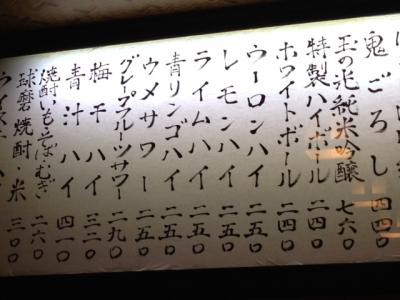 鬼ごろし 四四〇
玉の光純米吟醸 七六〇
特製ハイボール 二四〇
ホワイトボール 二四〇
ウーロンハイ 二五〇
レモンハイ 二五〇
ライムハイ 二五〇
青リンゴハイ 二五〇
ウメサワー 二五〇
グレープフルーツサワー 二九〇
梅干ハイ 三二〇
青汁ハイ 四一〇
焼酎・いも・そば・むぎ 二六〇
球磨焼酎・米 三〇〇